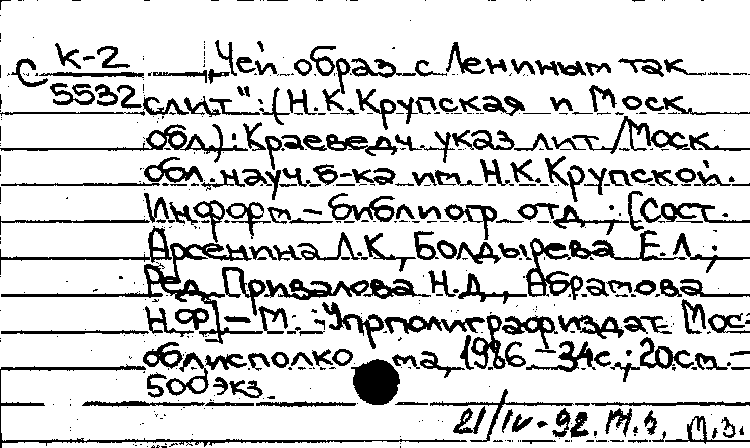 С К-2 „Чей образ с Лениным так
5532 слит": (Н.К.Крупская и Моск.
обл.): Краеведч. указ. лит. /Моск.
обл. науч. б-ка им. Н.К.Крупской.
Информ.-библиогр. отд.; [Сост.
Арсенина Л.К., Болдырева Е.Л.;
Ред. Привалова Н.Д., Абрамова
Н.Ф.] - М.: Упрполиграфиздат Мос-
облисполкома, 1986 - 34с.; 20см. -
500 экз.
21/IV-92. М.З. М.З.